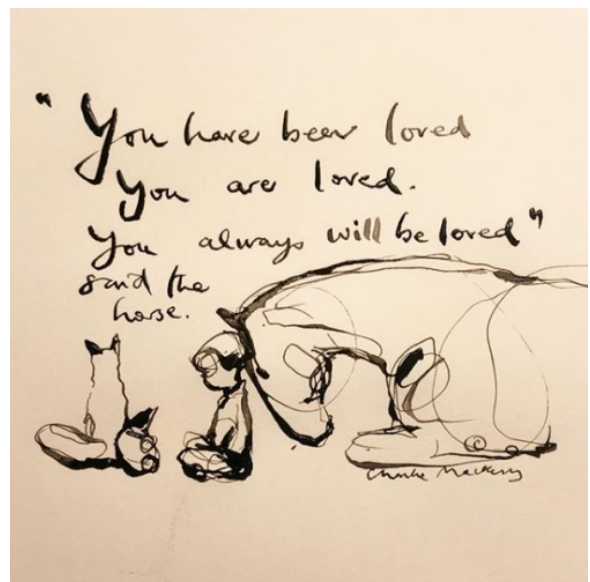 " You have been loved
You are loved.
You always will be loved"
said the
horse.
Charlie Mackesy